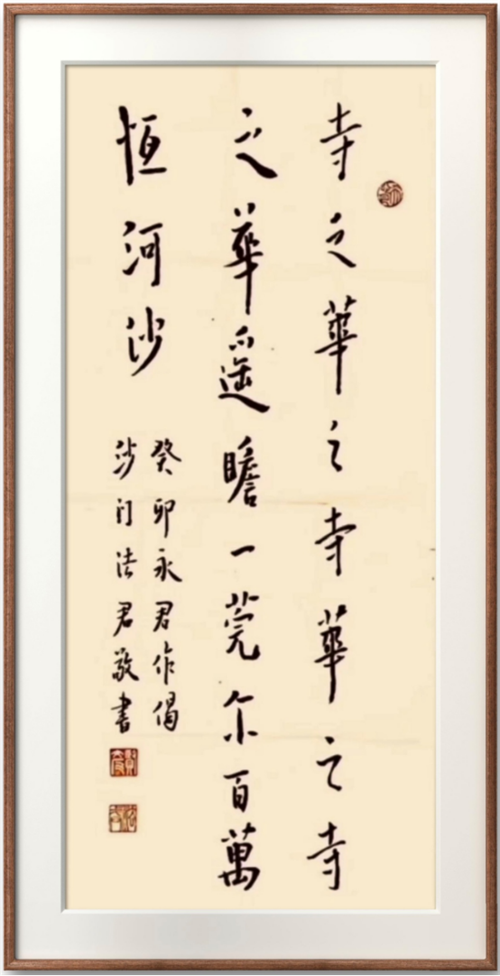 寺之華之寺華之寺
之華遥瞻一莞尔百萬
恒河沙
癸卯永君作偈
沙门法君敬書